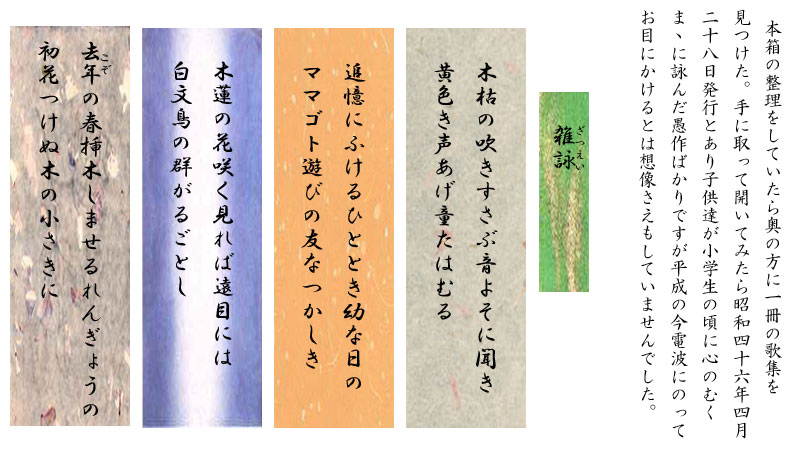 本箱の整理をしていたら奥の方に一冊の歌集を
見つけた。手に取って開いてみたら昭和四十六年四月
二十八日発行とあり子供達が小学生の頃に心のむく
まゝに詠んだ愚作ばかりですが平成の今電波にのって
お目にかけるとは想像さえもしていませんでした。
雑詠
ざつえい
木枯の吹きすさぶ音よそに聞き
黄色き声あげ童たはむる
追憶にふけるひととき幼な日の
ママゴト遊びの友なつかしき
木蓮の花咲く見れば遠目には
白文鳥の群がるごとし
去年の春挿木しませるれんぎょうの
こぞ
初花つけぬ木の小さきに